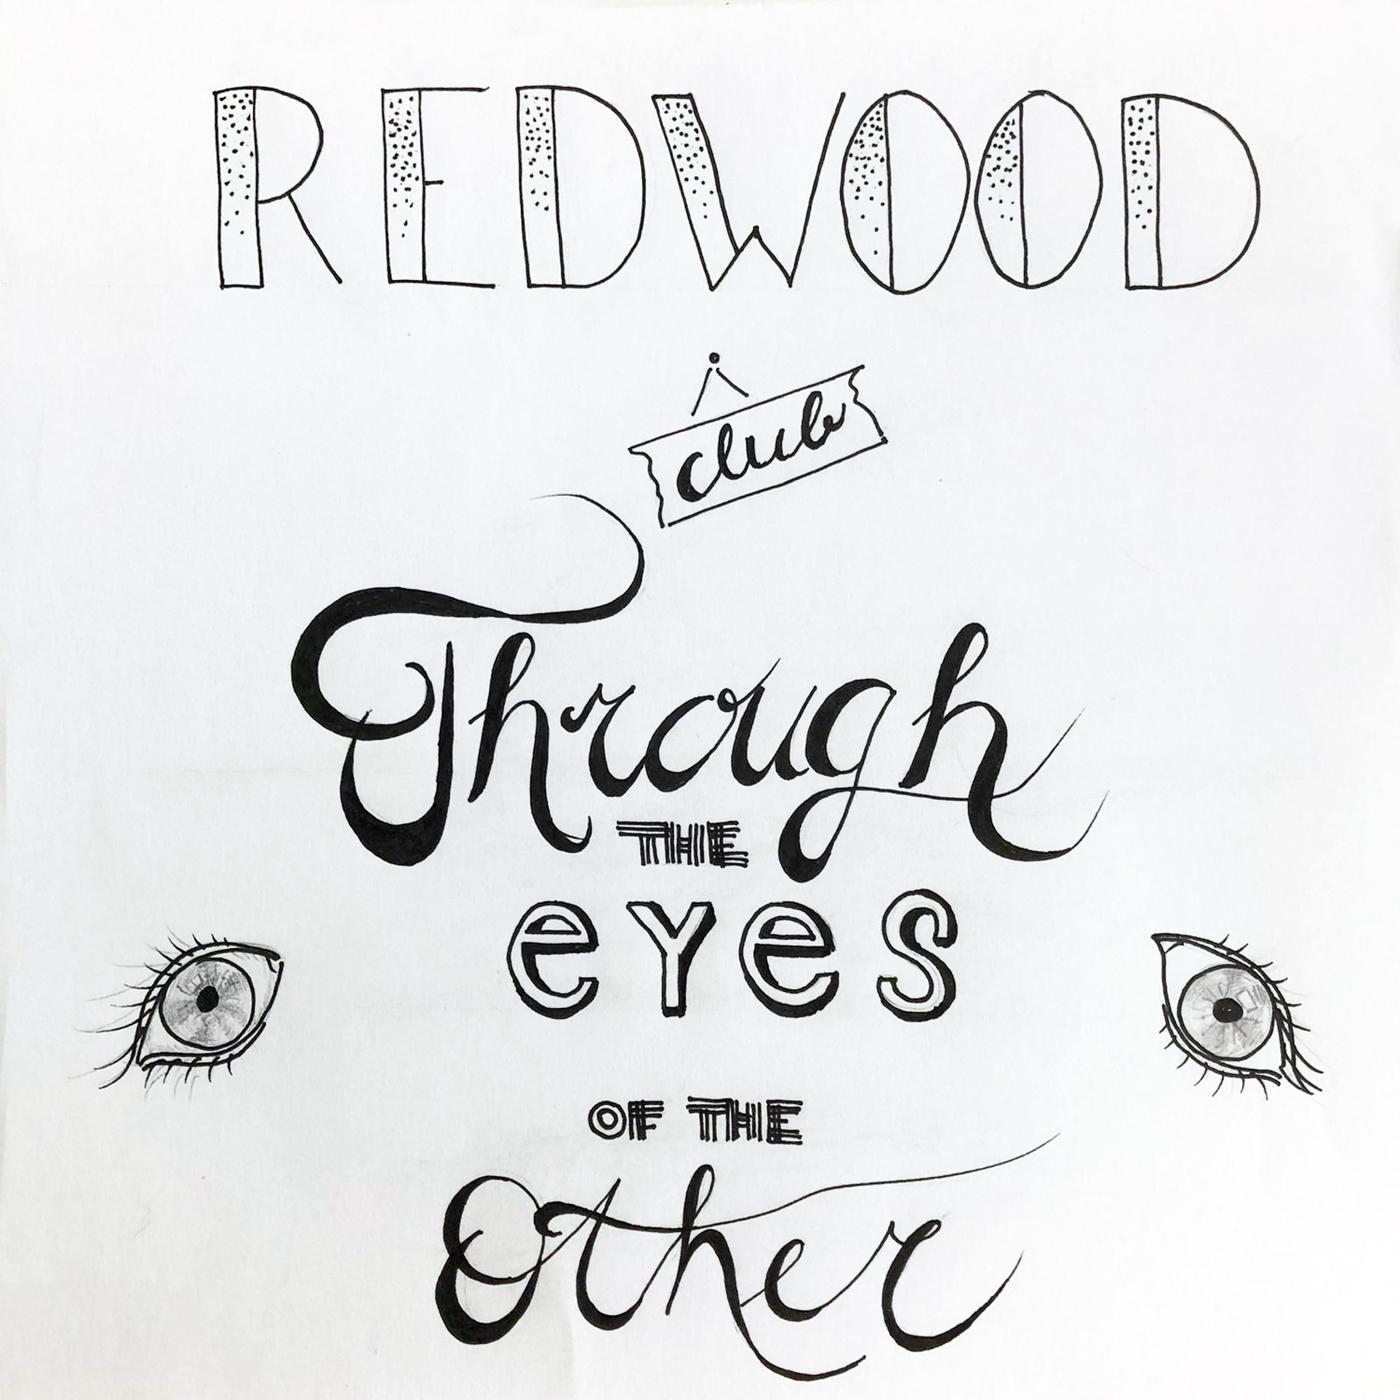 REDWOOD
club
Through
THE
eyes
OF THE
Other